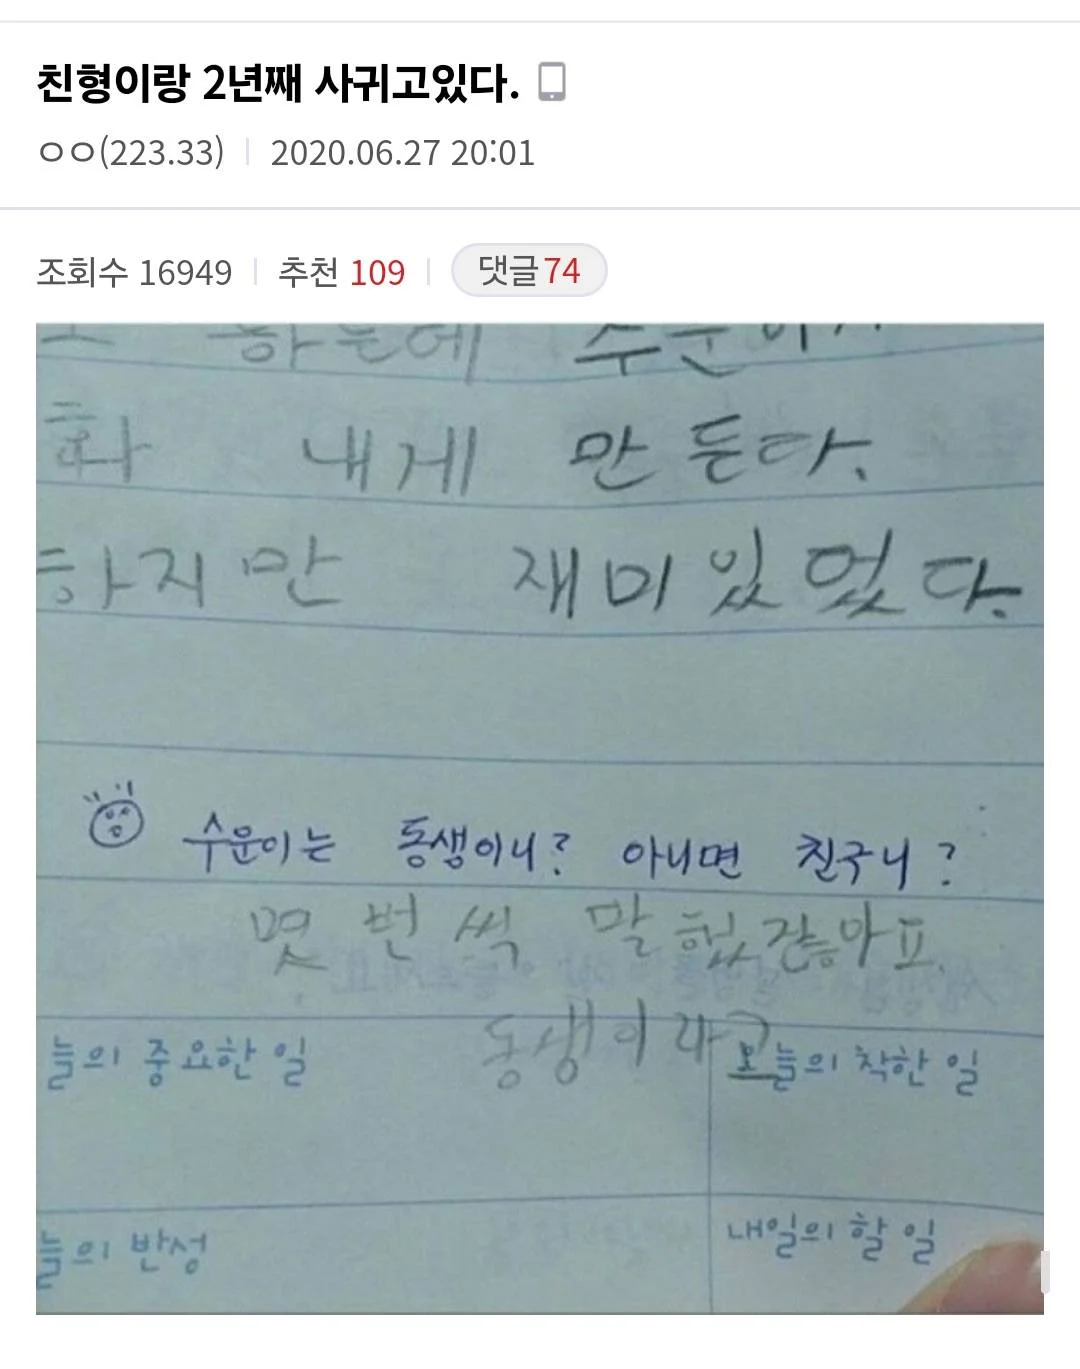 친형이랑 2년째 사귀고있다.
ㅇㅇ(223.33) 2020.06.27 20:01
조회수 16949 추천 109 댓글 74
하는데
화 내게 만든다.
하지만 재미있었다.
수운이는 동생이니? 아니면 친구니?
몇 번 씩 말했잖아요.
동생이라고
늘의 중요한 일 오늘의 착한 일
늘의 반성 내일의 할 일